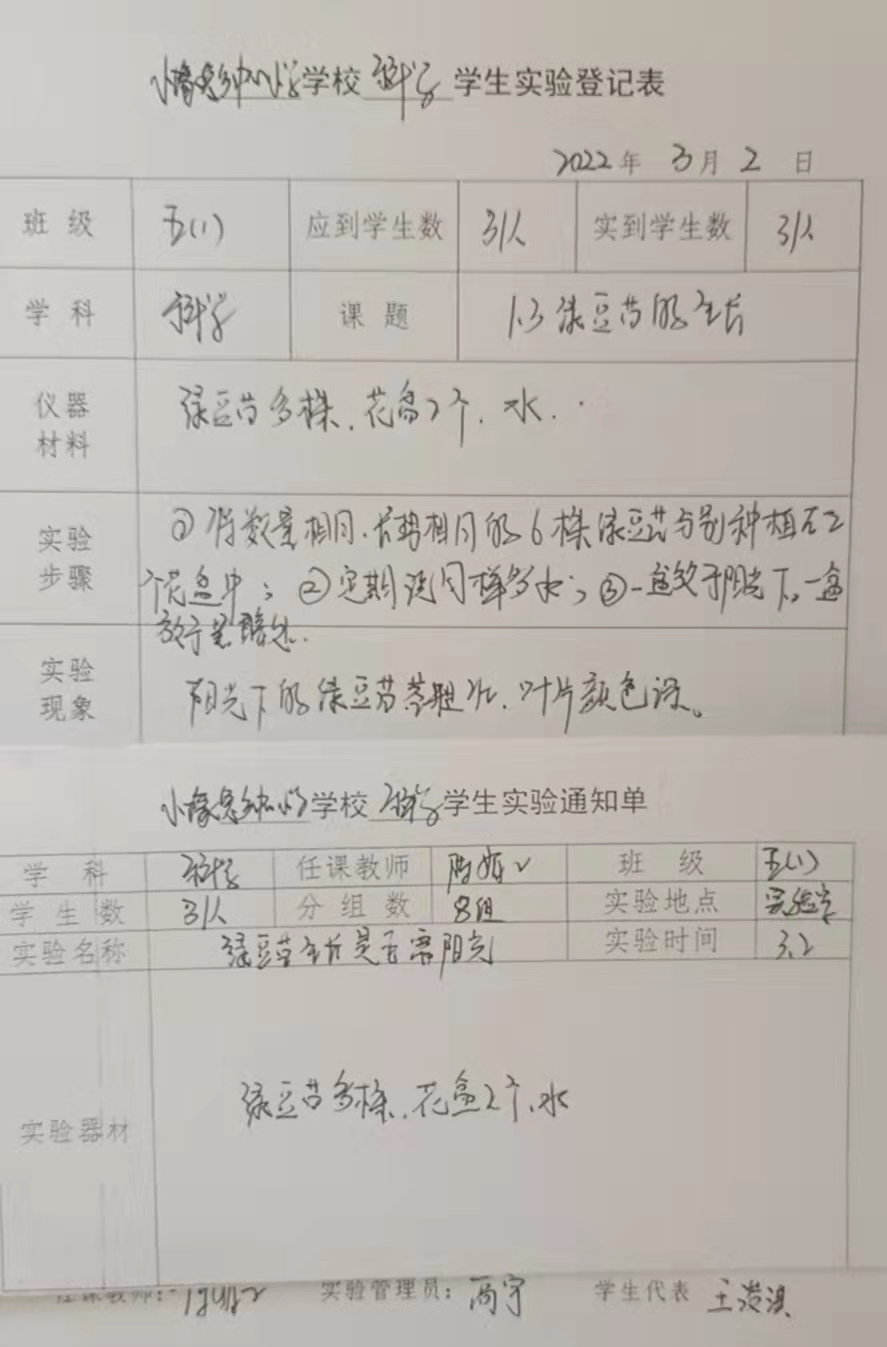 学校 科学 学生实验登记表
2022年 3月 2 日
班 级 五(1) 应到学生数 31人 实到学生数 31人
学 科 科学 课 题 1.3 绿豆苗的生长
仪器 材料 绿豆苗多株、花盆2个、水.
实验 步骤 ①将数量相同、长势相同的6株绿豆苗分别种植在2
个花盆中；②定期浇同样多水；③一盆放于阳光下，一盆
放于黑暗处.
实验 现象 阳光下的绿豆苗茎粗壮、叶片颜色深。
学校 科学 学生实验通知单
学 科 科学 任课教师 班 级 五(1)
学 生 数 31人 分 组 数 8组 实验地点 实验室
实验名称 绿豆苗生长是否需阳光 实验时间 3.2
实验器材 绿豆苗多株、花盆2个、水
任课教师: 实验管理员: 高宇 学生代表